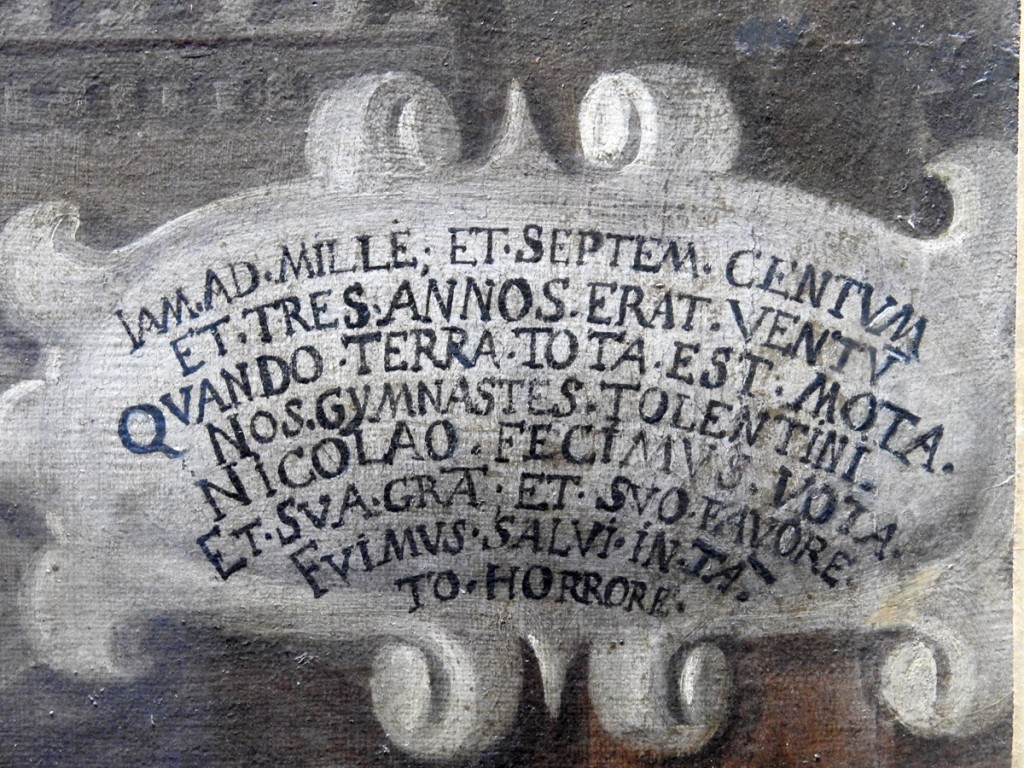 IAM.AD.MILLE; ET.SEPTEM. CENTVM
ET.TRES.ANNOS.ERAT.VENTV
QVANDO.TERRA.TOTA.EST.MOTA.
NOS.GYMNASTES.TOLENTINI.
NICOLAO.FECIMVS.VOTA.
ET.SVA.GRA, ET.SVO.FAVORE.
FVIMVS.SALVI.IN.TA-
TO.HORRORE.